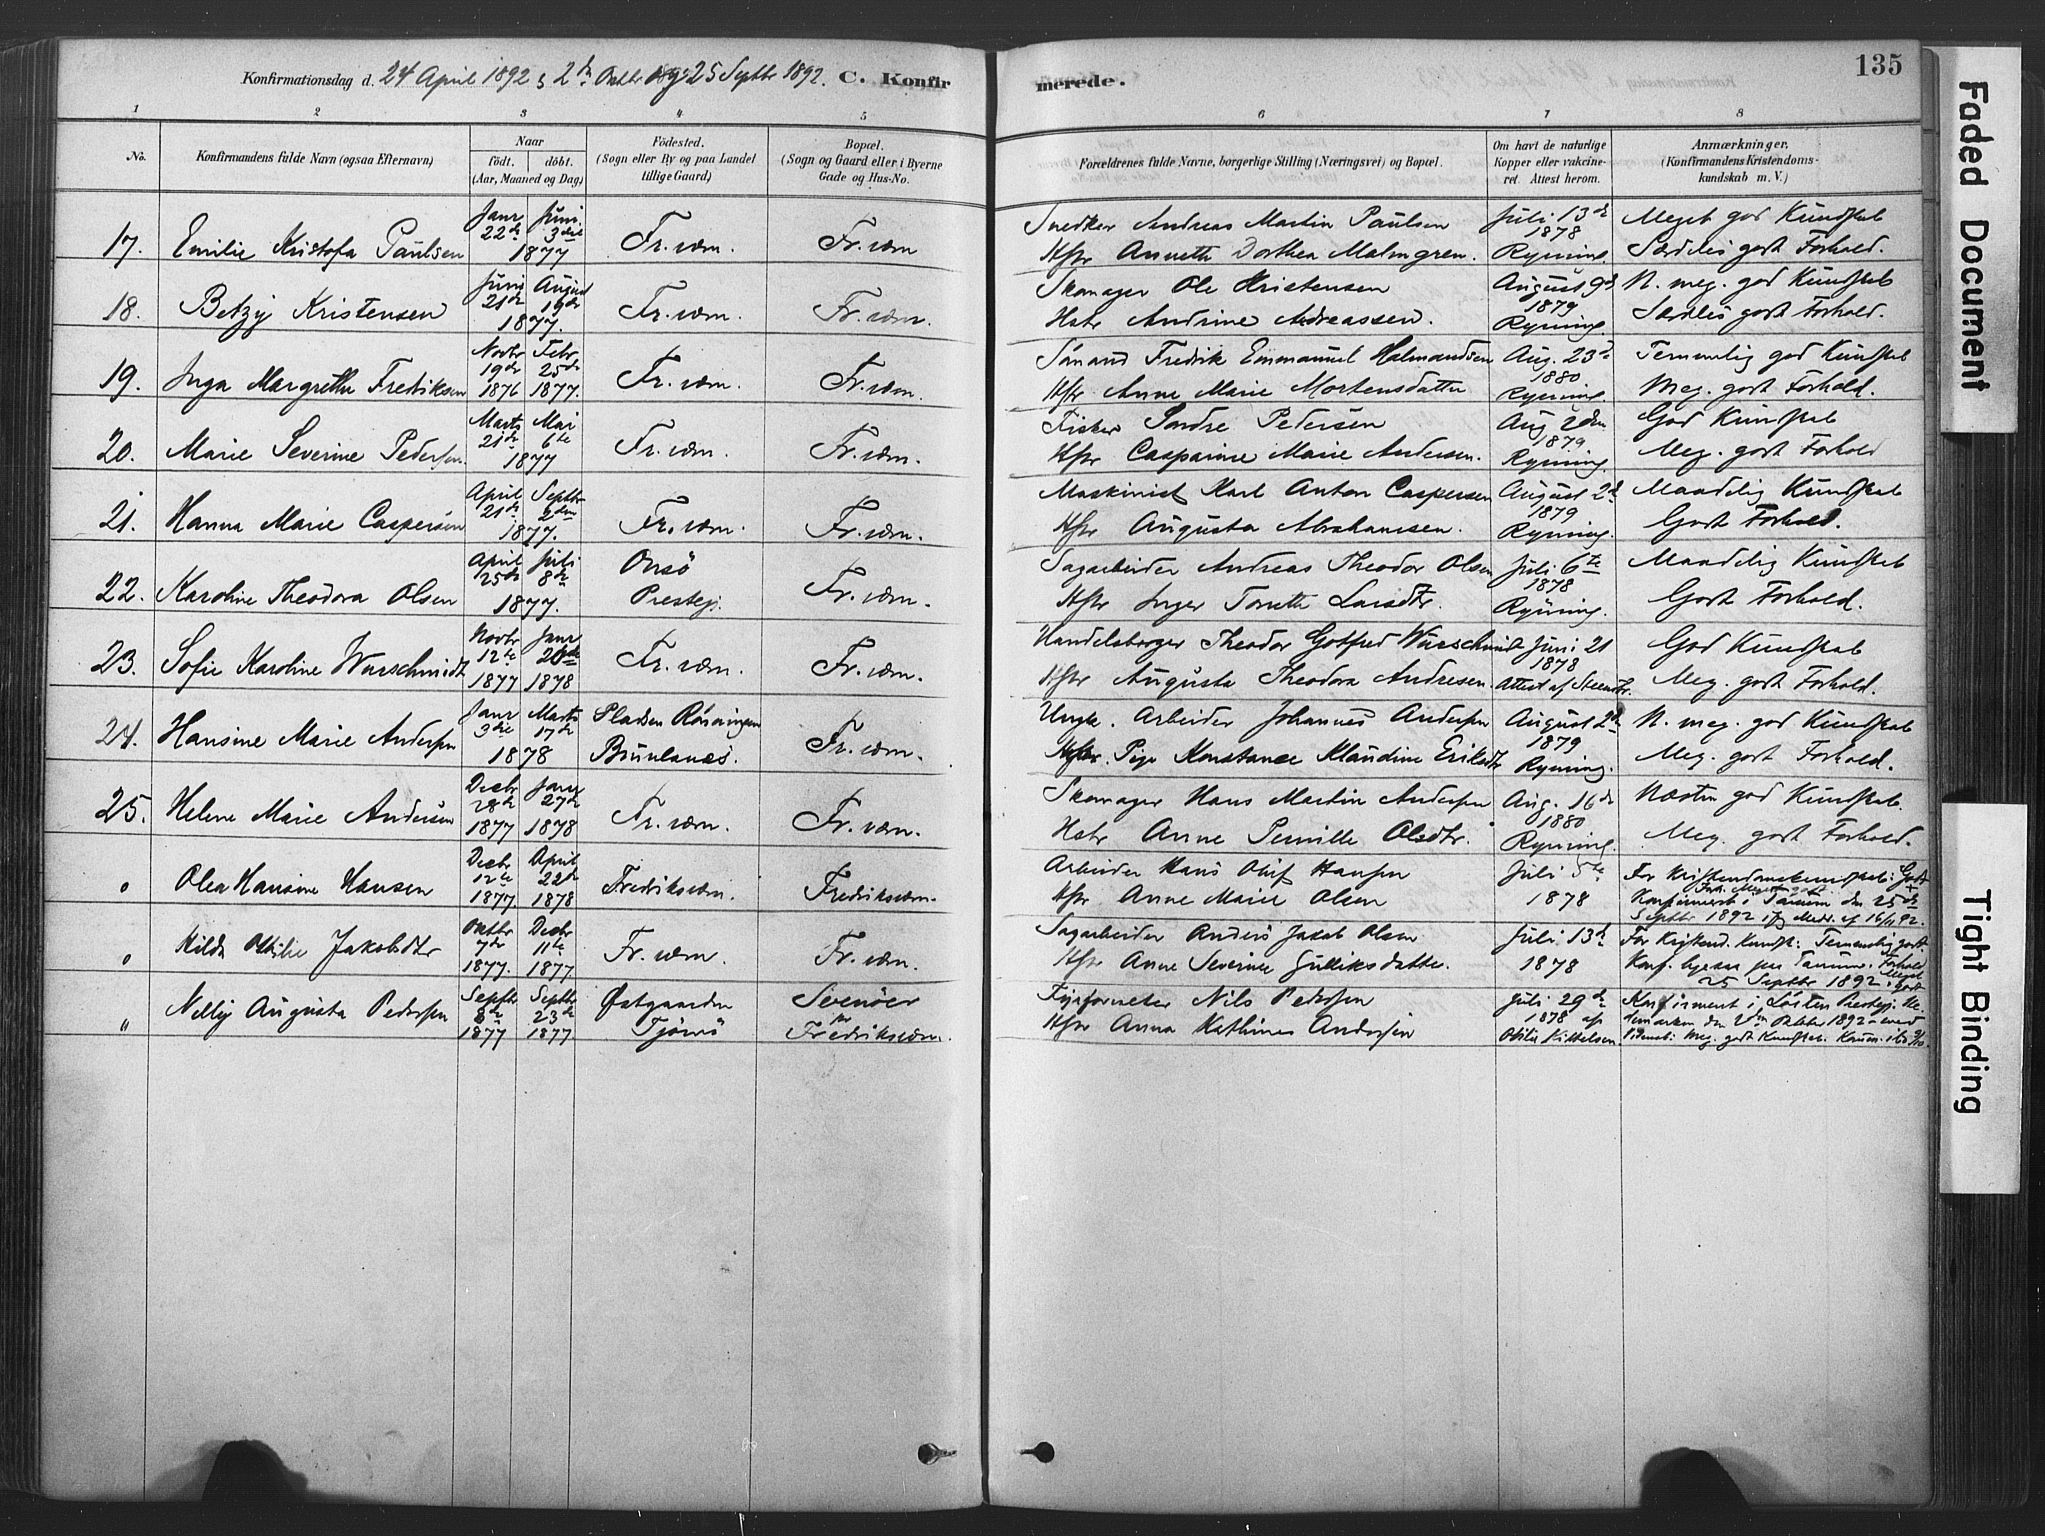 Konfirmationsdag d. 24 April 1892 & 2den Oktbr og 25 Septbr 1892. C. Konfirmerede. 135
1 2 3 4 5 6 7 8
No. Konfirmandens fulde Navn (ogsaa Efternavn) Naar födt. döbt. (Aar, Maaned og Dag) Födested. (Sogn eller By og paa Landet tillige Gaard) Bopæl. (Sogn og Gaard eller i Byerne Gade og Hus-No. Forældrenes fulde Navne, borgerlige Stilling (Næringsvei) og Bopæl. Om havt de naturlige Kopper eller vakcineret. Attest herom. Anmærkninger. (Konfirmandens Kristendomskundskab m. V.)
17. Emilie Kristofa Paulsen Janr 22de Juni 3die 1877 Fr.værn. Fr.værn Snedker Andreas Martin Paulsen Hstr Annette Dorthea Malmgren. Juli 13de 1878 Ryning Meget god Kundskab Særdeles godt Forhold.
18. Betzy Kristensen Juni 21de August 19de 1877. Fr.værn. Fr.værn. Skomager Ole Kristensen Hstr Andrine Adreassen. August 9d 1879 Ryning. N. meg. god Kundskab Særdeles godt Forhold.
19. Inga Margrethe Fredriksen Novbr 19de 1876 Febr 25de 1877. Fr.værn. Fr.værn. Sömand Fredrik Emmanuel Halmandsen Hstr Anne Marie Mortensdatter Aug. 23de 1880 Ryning Temmelig god Kundskab Meg. godt Forhold.
20. Marie Severine Pedersen. Marts 21de Mai 6te 1877 Fr.værn. Fr.værn. Fisker Sondre Pedersen Hstr Casparine Marie Andersen. Aug 2den 1879 Ryning. God Kundskab Meg. godt Forhold
21. Hanna Marie Caspersen April 21de Septbr 2den 1877. Fr.værn. Fr.værn. Maskinist Karl Anton Caspersen Hstr Augusta Abrahamsen. August 2d 1879 Ryning. Maadelig Kundskab Godt Forhold.
22. Karoline Theodora Olsen April 25de Juli 8de 1877. Onsö Prestegj. Fr.værn. Sagarbeider Andreas Theodor Olsen Hstr Inger Torette Larsdtr. Juli 6te 1878 Ryning. Maadelig Kundskab Godt Forhold.
23. Sofie Karoline Wurschmidt Novbr 12te 1877 Janr 20de 1878 Fr.værn. Fr.værn. Handelsborger Theodor Gotfred Wurschmidt Hstr Augusta Theodora Andresen. Juni 21 1878 Attest af Steenbr. God Kundskab Meg. godt Forhold.
24. Hansine Marie Andersen Janr 3die Marts 17de 1878 Pladsen Rönningen Brunlanæs. Fr.værn. Ungk. Arbeider Johannes Andersen Pige Konstanse Klaudine Eriksdtr August 2den 1879 Ryning. N. meg. god Kundskab Meg. godt Forhold.
25. Helene Marie Andersen Decbr 28de 1877 Janr 27de 1878 Fr.værn. Fr.værn. Skomager Hans Martin Andersen Hstr Anne Pernille Olsdtr. Aug. 16de 1880 Ryning. Næsten god Kundskab. Meg. godt Forhold.
o Olea Hansine Hansen Decbr 12te 1877. April 22de 1878 Fredriksværn Fredriksværn. Arbeider Hans Oluf Hansen Hstr Anne Marie Olsen Juli 5te 1878 For Kristendomskundskab: Godt Forh. Meget godt Konfirmeret i Tanum den 25de Septbr 1892 ifg Medd. af 16/11 92.
o Hilda Othilie Jakobsdtr Oktbr 7de 1877. Decbr 11te 1877. Fr.værn. Fr.værn. Sagarbeider Anders Jakob Olsen Hstr Anne Severine Gulliksdatter. Juli 13de 1878 For Kristend. Kundsk: Temmelig godt. Forhold Meget godt Konf. hjemme paa Tanum. 25 Septbr 1892
" Nelly Augusta Pedersen Septbr 8de 1877 Septbr 23de 1877 Østgaarden Tjömö Svenöer pr Fredriksværn. Fyrforvalter Nils Pedersen Hstr Anna Kathinea Andersen Juli 29de 1878 af Othilie Kittelsen. Konfirmeret i Löiten Prestegj. Hedemarken den 2den Oktbr 1892 med Vidnesb: Meg. godt Kundskab.
Faded Document
Tight Binding